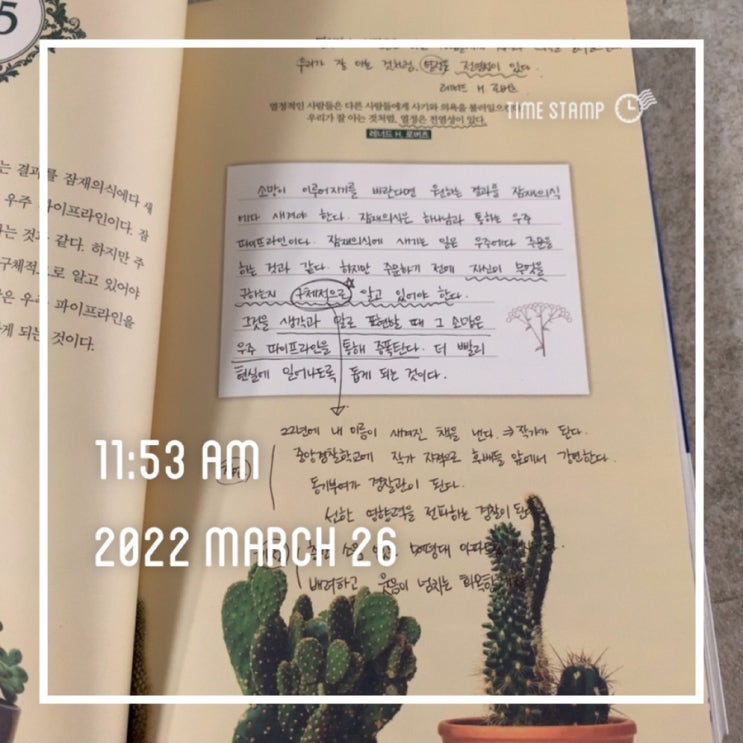 5
는 결과를 잠재의식에다 새
우주 파이프라인이다. 잠
하는 것과 같다. 하지만 주
구체적으로 알고 있어야
은 우주 파이프라인을
게 되는 것이다.
우리가 잘 아는 것처럼, 열정은 전염성이 있다.
레너드 H. 로버츠
TIME STAMP
열정적인 사람들은 다른 사람들에게 사기와 의욕을 불러일으
우리가 잘 아는 것처럼, 열정은 전염성이 있다.
레너드 H. 로버츠
소망이 이루어지기를 바란다면 원하는 결과을 잠재의식
에다 새겨야 한다. 잠재의식은 하나님과 통하는 우주
파이프라인이다. 잠재의식에 새기는 일은 우주에다 주문을
하는 것과 같다. 하지만 주문하기 전에 자신이 무엇을
구하는지 구체적으로 알고 있어야 한다.
그것을 생각과 말로 표현할 때 그 소망은
우주 파이프라인을 통해 증폭된다. 더 빨리
현실에 일어나도록 돕게 되는 것이다.
22년에 내 이름이 새겨진 책을 낸다. ⇒ 작가가 된다.
중앙경찰학교에 작가 자격으로 후배들 앞에서 강연한다.
동기부여가 경찰관이 된다.
선한 영향력을 전파하는 경찰이 된다.
50평대
배려하고 웃음이 넘치는 화목한
11:53 AM
2022 MARCH 26